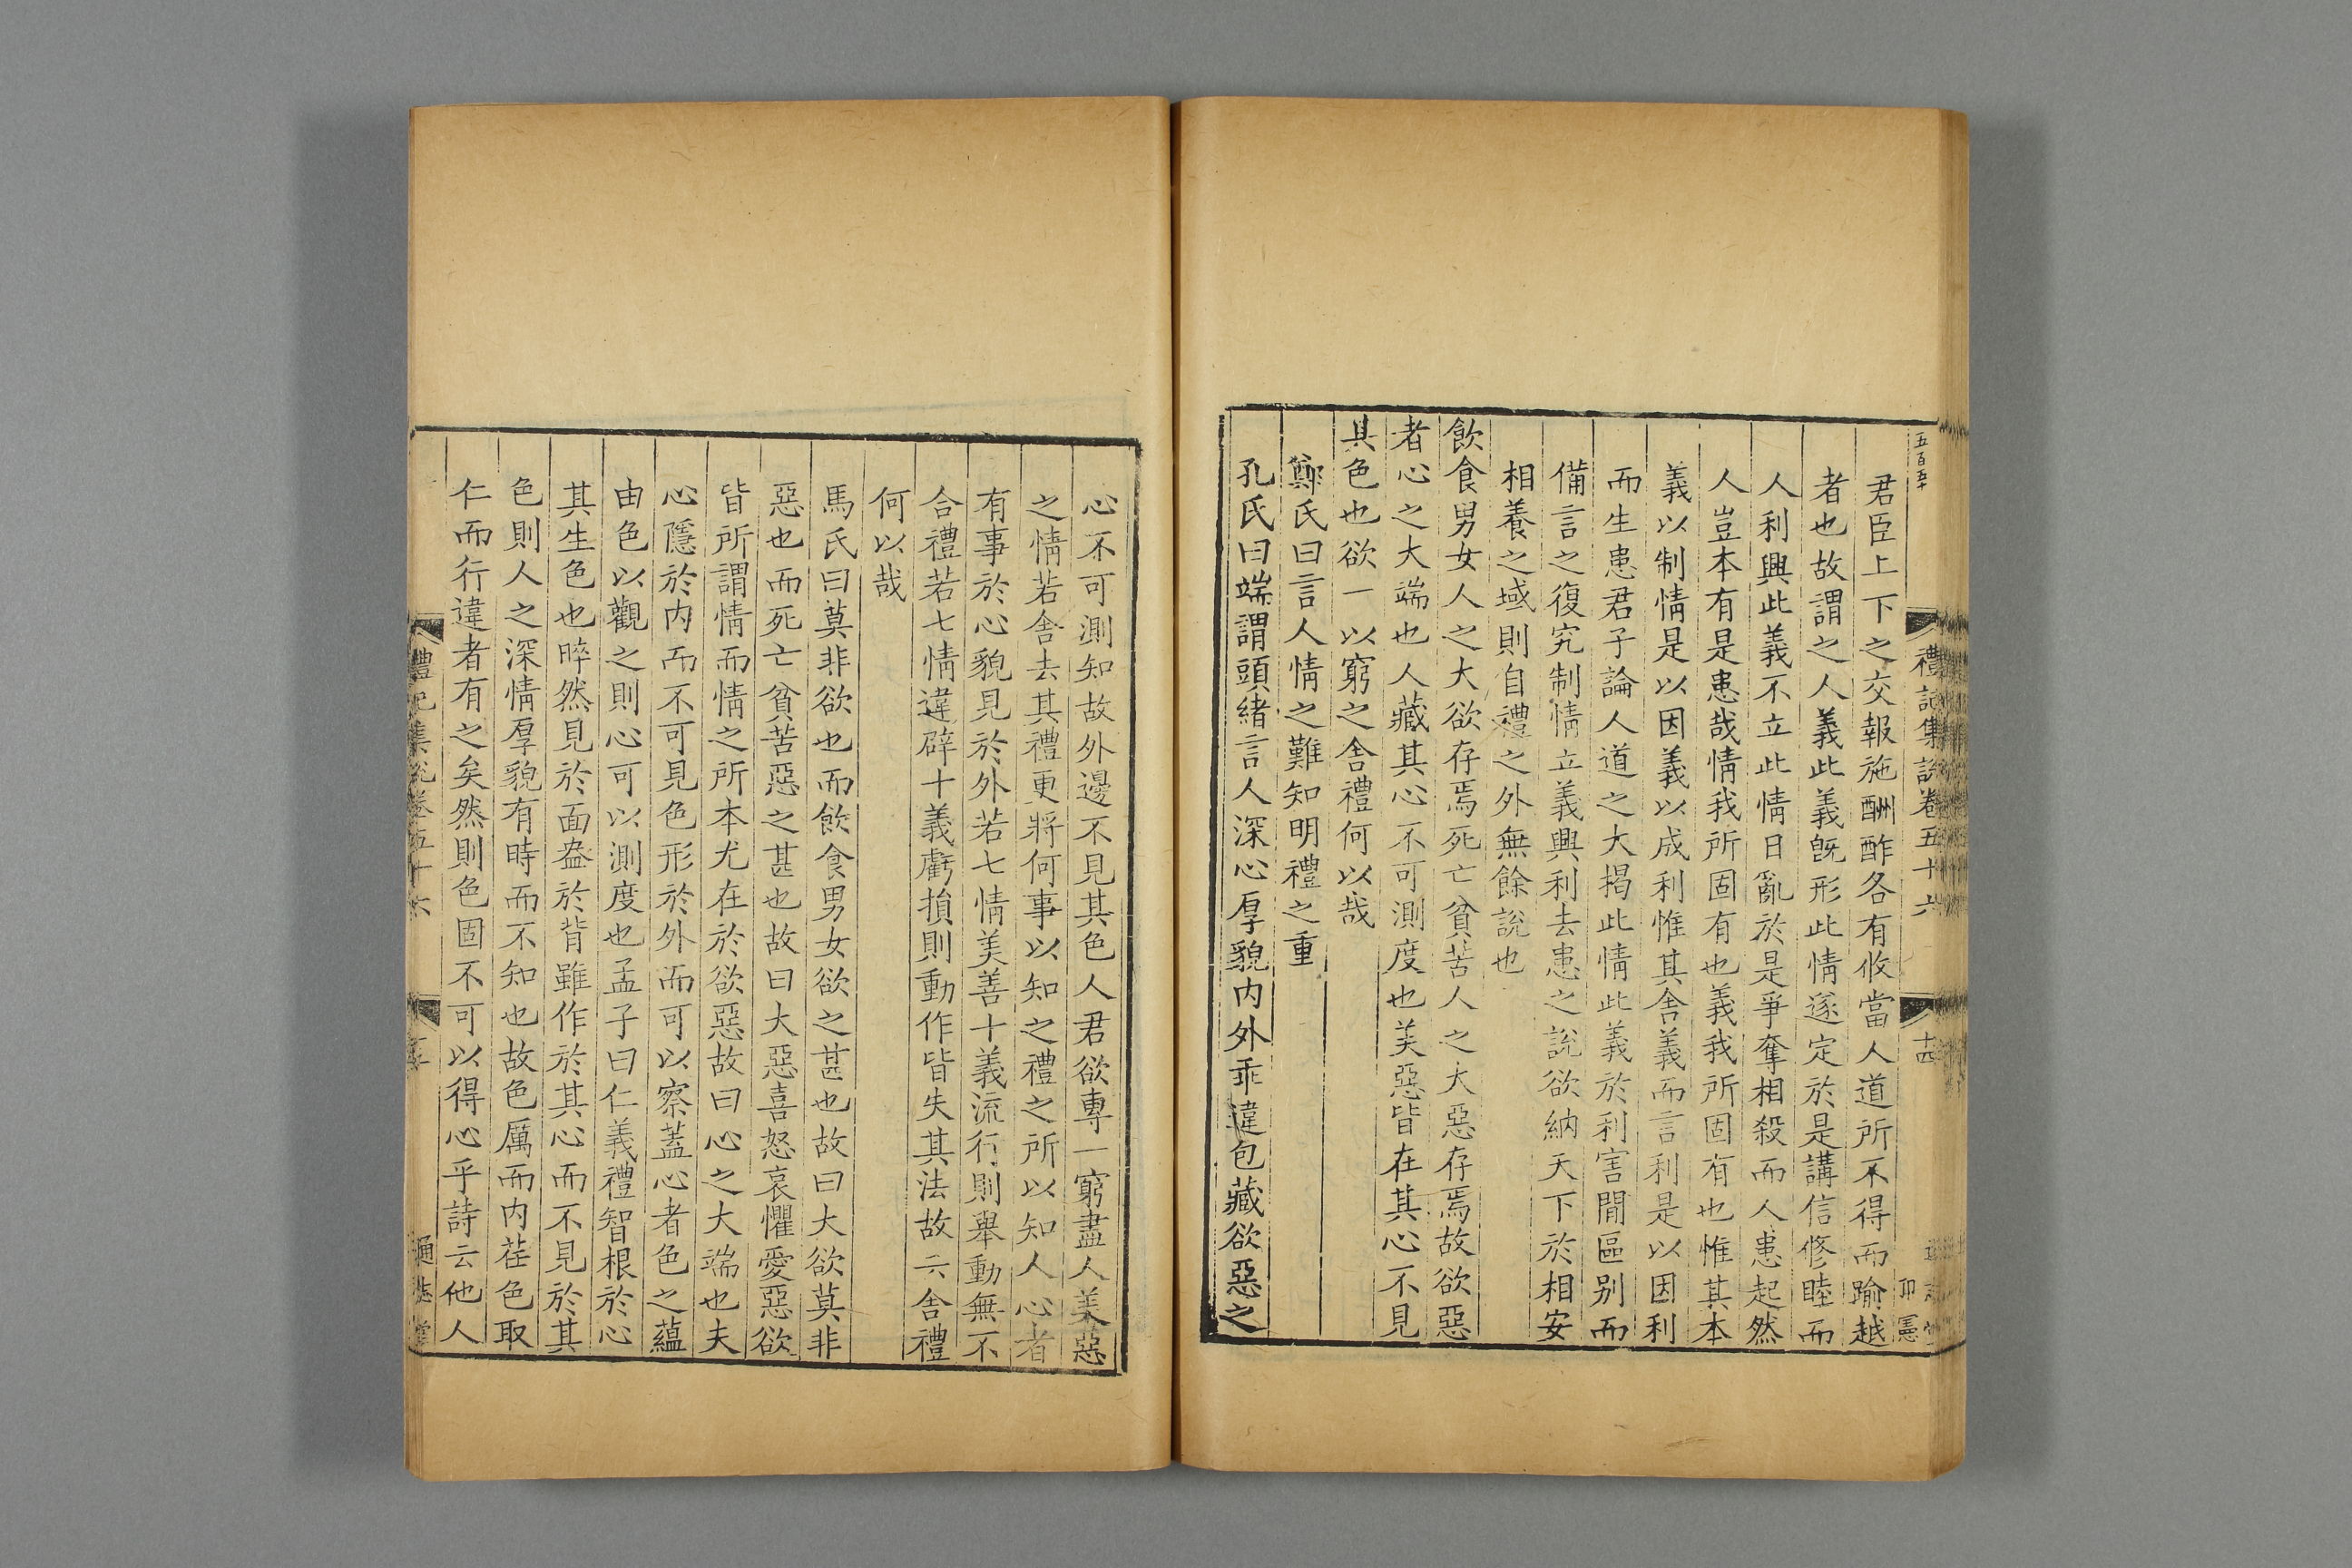 五百五十
禮記集說卷五十六
十四
君臣上下之交報施酬酢各有攸當人道所不得而踰越
者也故謂之人義此義旣形此情遂定於是講信修睦而
人利興此義不立此情日亂於是爭奪相殺而人患起然
人豈本有是患哉情我所固有也義我所固有也惟其本
義以制情是以因義以成利惟其舍義而言利是以因利
而生患君子論人道之大揭此情此義於利害閒區別而
備言之復究制情立義興利去患之說欲納天下於相安
相養之域則自禮之外無餘說也
飲食男女人之大欲存焉死亡貧苦人之大惡存焉故欲惡
者心之大端也人藏其心不可測度也美惡皆在其心不見
其色也欲一以窮之舍禮何以哉
鄭氏曰言人情之難知明禮之重
孔氏曰端謂頭緒言人深心厚貌内外乖違包藏欲惡之
心不可測知故外邊不見其色人君欲專一窮盡人美惡
之情若舍去其禮更將何事以知之禮之所以知人心者
有事於心貌見於外若七情美善十義流行則舉動無不
合禮若七情違辟十義虧損則動作皆失其法故云舍禮
何以哉
馬氏曰莫非欲也而飲食男女欲之甚也故曰大欲莫非
惡也而死亡貧苦惡之甚也故曰大惡喜怒哀懼愛惡欲
皆所謂情而情之所本尤在於欲惡故曰心之大端也夫
心隱於内而不可見色形於外而可以察蓋心者色之蘊
由色以觀之則心可以測度也孟子曰仁義禮智根於心
其生色也睟然見於面盎於背雖作於其心而不見於其
色則人之深情厚貌有時而不知也故色厲而内荏色取
仁而行違者有之矣然則色固不可以得心乎詩云他人
禮記集說卷五十六
通志堂